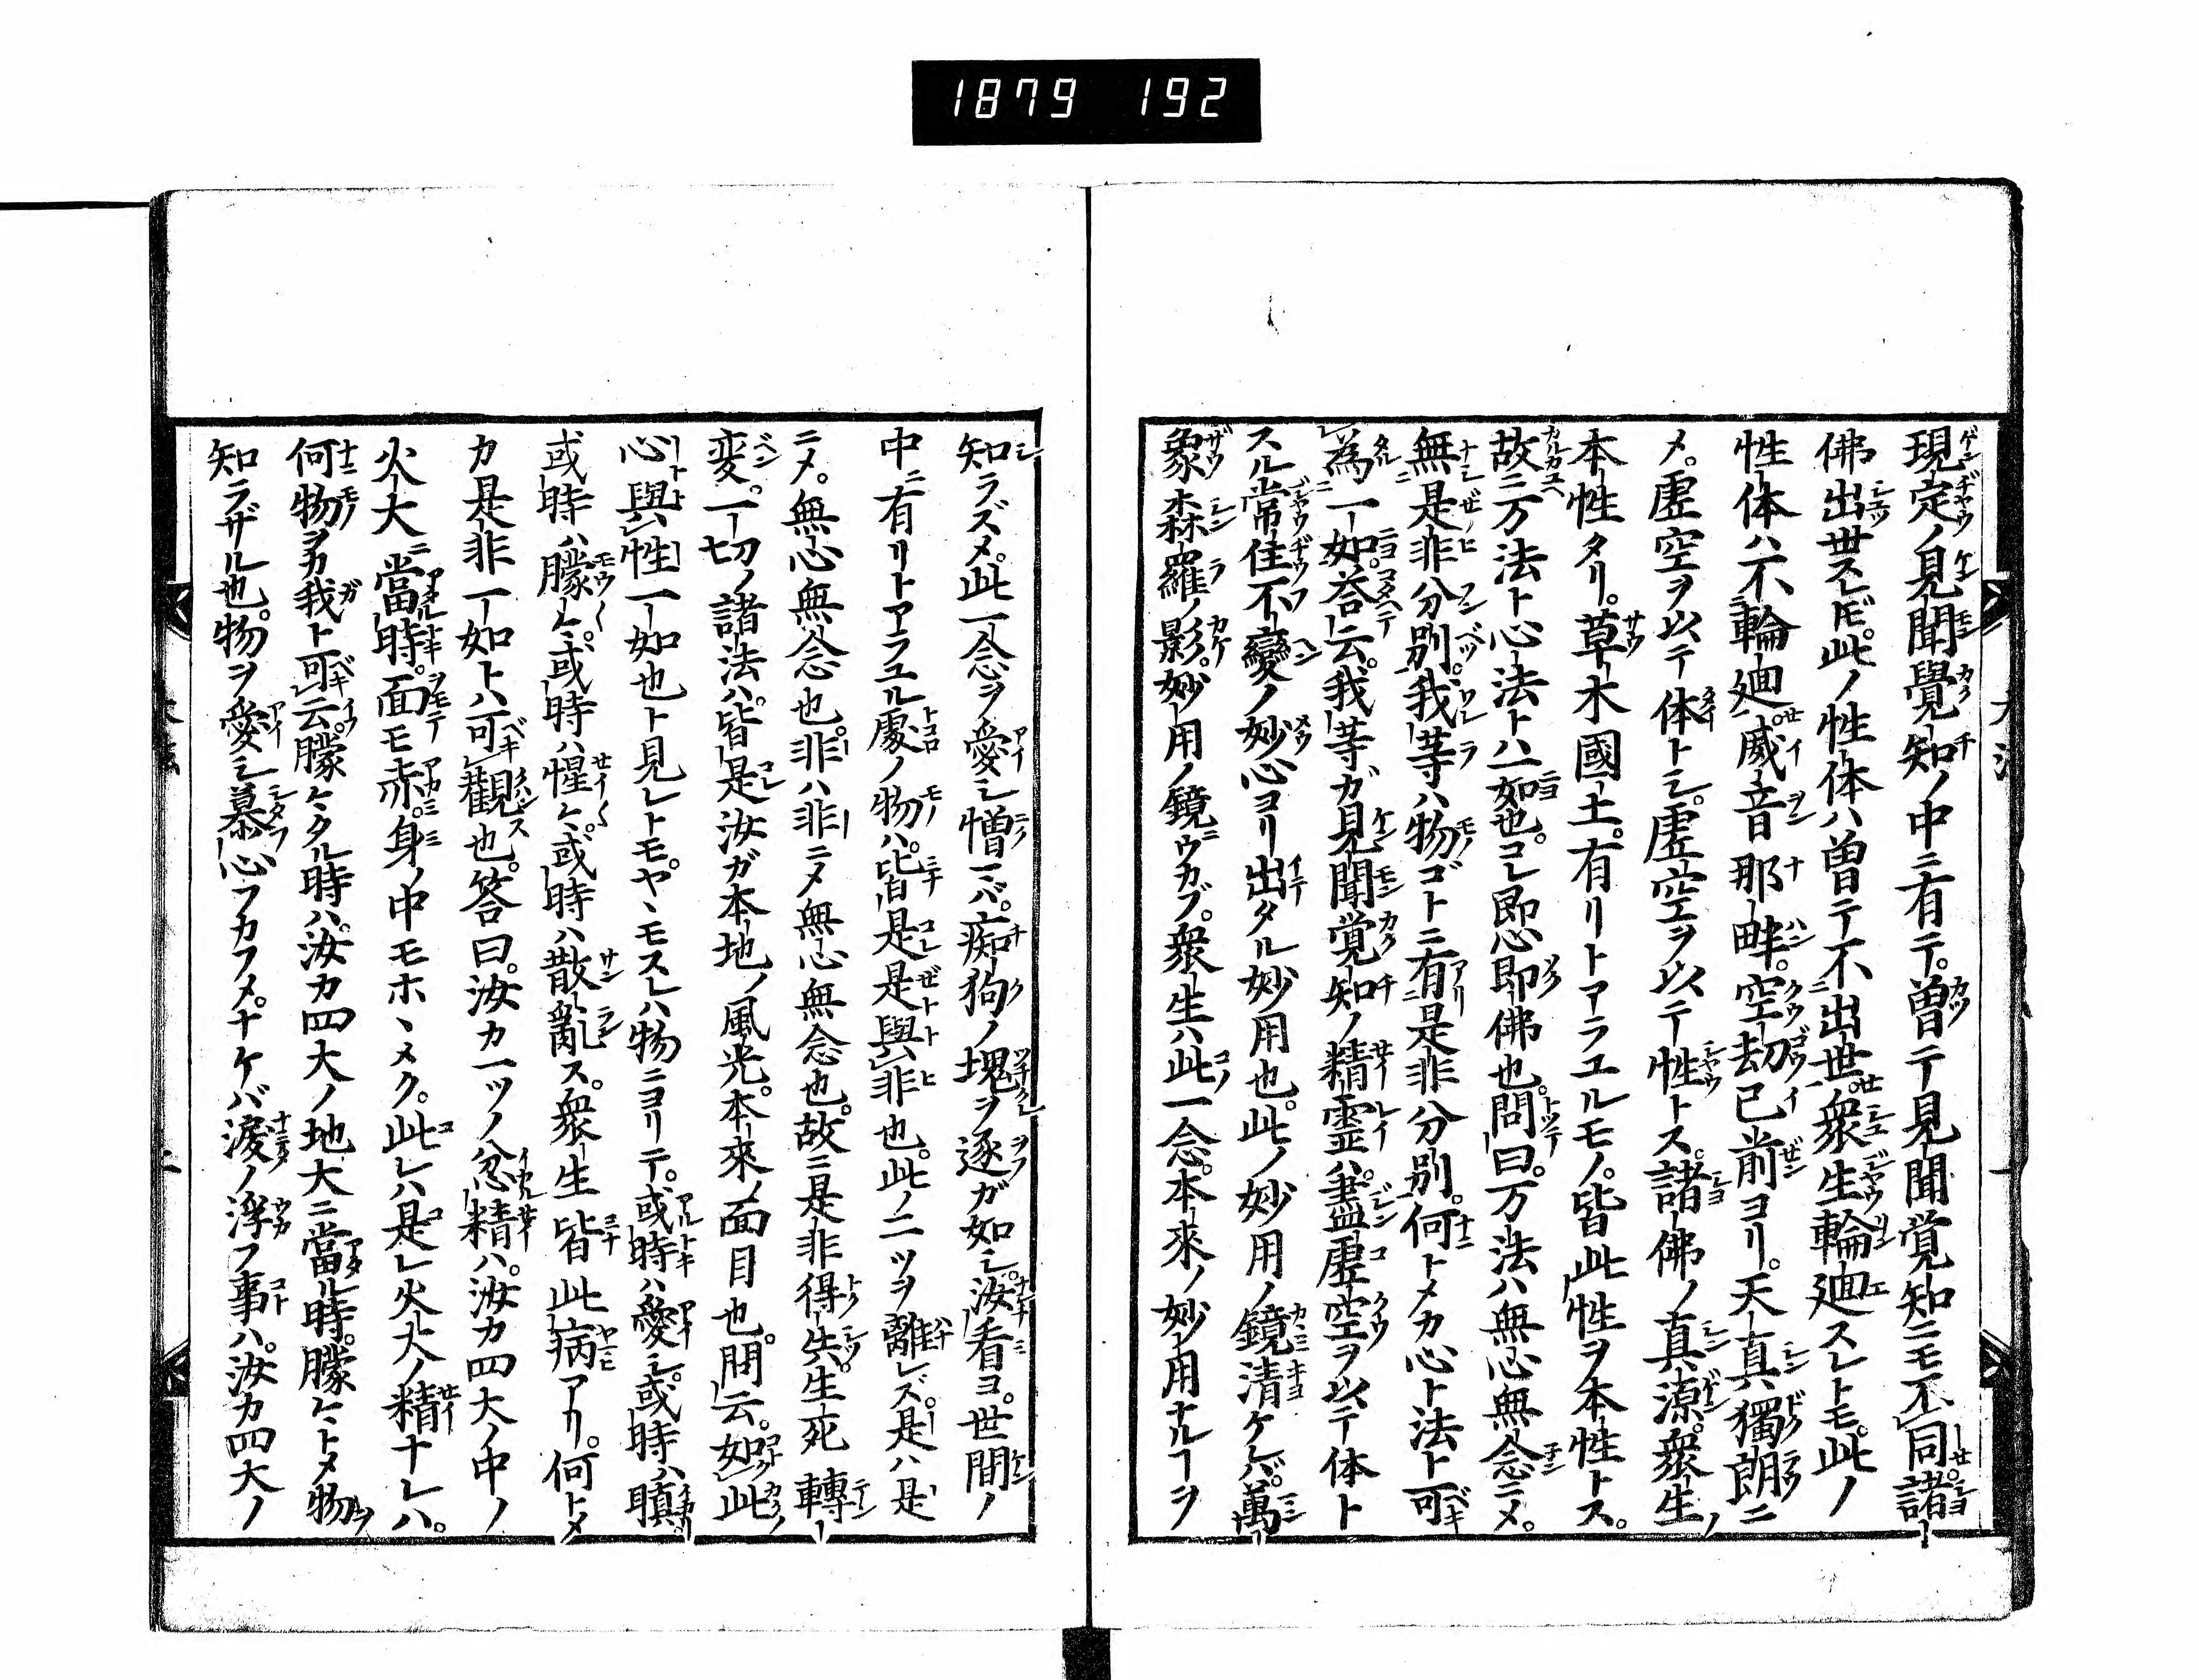 1879 192
現定ノ見聞覺知ノ中ニ有テ。曽テ見聞覚知ニモ不同。諸
佛出世スレドモ。此ノ性体ハ曽テ不出世。衆生輪廻スレトモ。此ノ
性体ハ不輪廻。威音那畔。空劫已前ヨリ。天真獨朗ニ
メ。虚空ヲ以テ体トシ。虚空ヲ以テ性トス。諸佛ノ真源。衆生ノ
本性タリ。草木國土。有リトアラユルモノ。皆此性ヲ本性トス。
故ニ万法ト心法トハ一如也。コレ即心即佛也。問曰。万法ハ無心無念ニメ。
無是非分別。我等ハ物ゴトニ有是非分別。何トメカ心ト法ト可
為一如。答云。我等ガ見聞覚知ノ精霊ハ。盡虚空ヲ以テ体ト
スル常住不變ノ妙心ヨリ出タル妙用也。此ノ妙用ノ鏡清ケレバ。萬
象森羅ノ影。妙用ノ鏡ニウカブ。衆生ハ此一念。本来ノ妙用ナルヿヲ
知ラズメ。此一念ヲ愛シ憎ニバ。痴狗ノ塊ヲ逐ガ如シ。汝看ヨ。世間ノ
中ニ有リトアラユル處ノ物ハ。皆是是與非也。此ノ二ツヲ離レズ。是ハ是
ニメ。無心無念也。非ハ非ニメ無心無念也。故ニ是非得失。生死轉
変。一切ノ諸法ハ。皆是汝ガ本地ノ風光。本来ノ面目也。問云。如此
心與性一如也ト見レトモ。ヤヽモスレハ物ニヨリテ。或時ハ愛シ。或時ハ瞋
或時ハ朦々。或時ハ惺々。或時ハ散亂ス。衆生皆此病アリ。何トメ
カ是非一如トハ可觀也。答曰。汝カ一ツノ忿精ハ。汝カ四大ノ中ノ
火大ニ當時。面モ赤。身ノ中モホヽメク。此レハ是レ火大ノ精ナレハ。
何物ヲカ我ト可云。朦々タル時ハ。汝カ四大ノ地大ニ當ル時。朦々トメ物ヲ
知ラザル也。物ヲ愛シ慕心フカフメ。ナケバ涙ノ浮フ事ハ。汝カ四大ノ